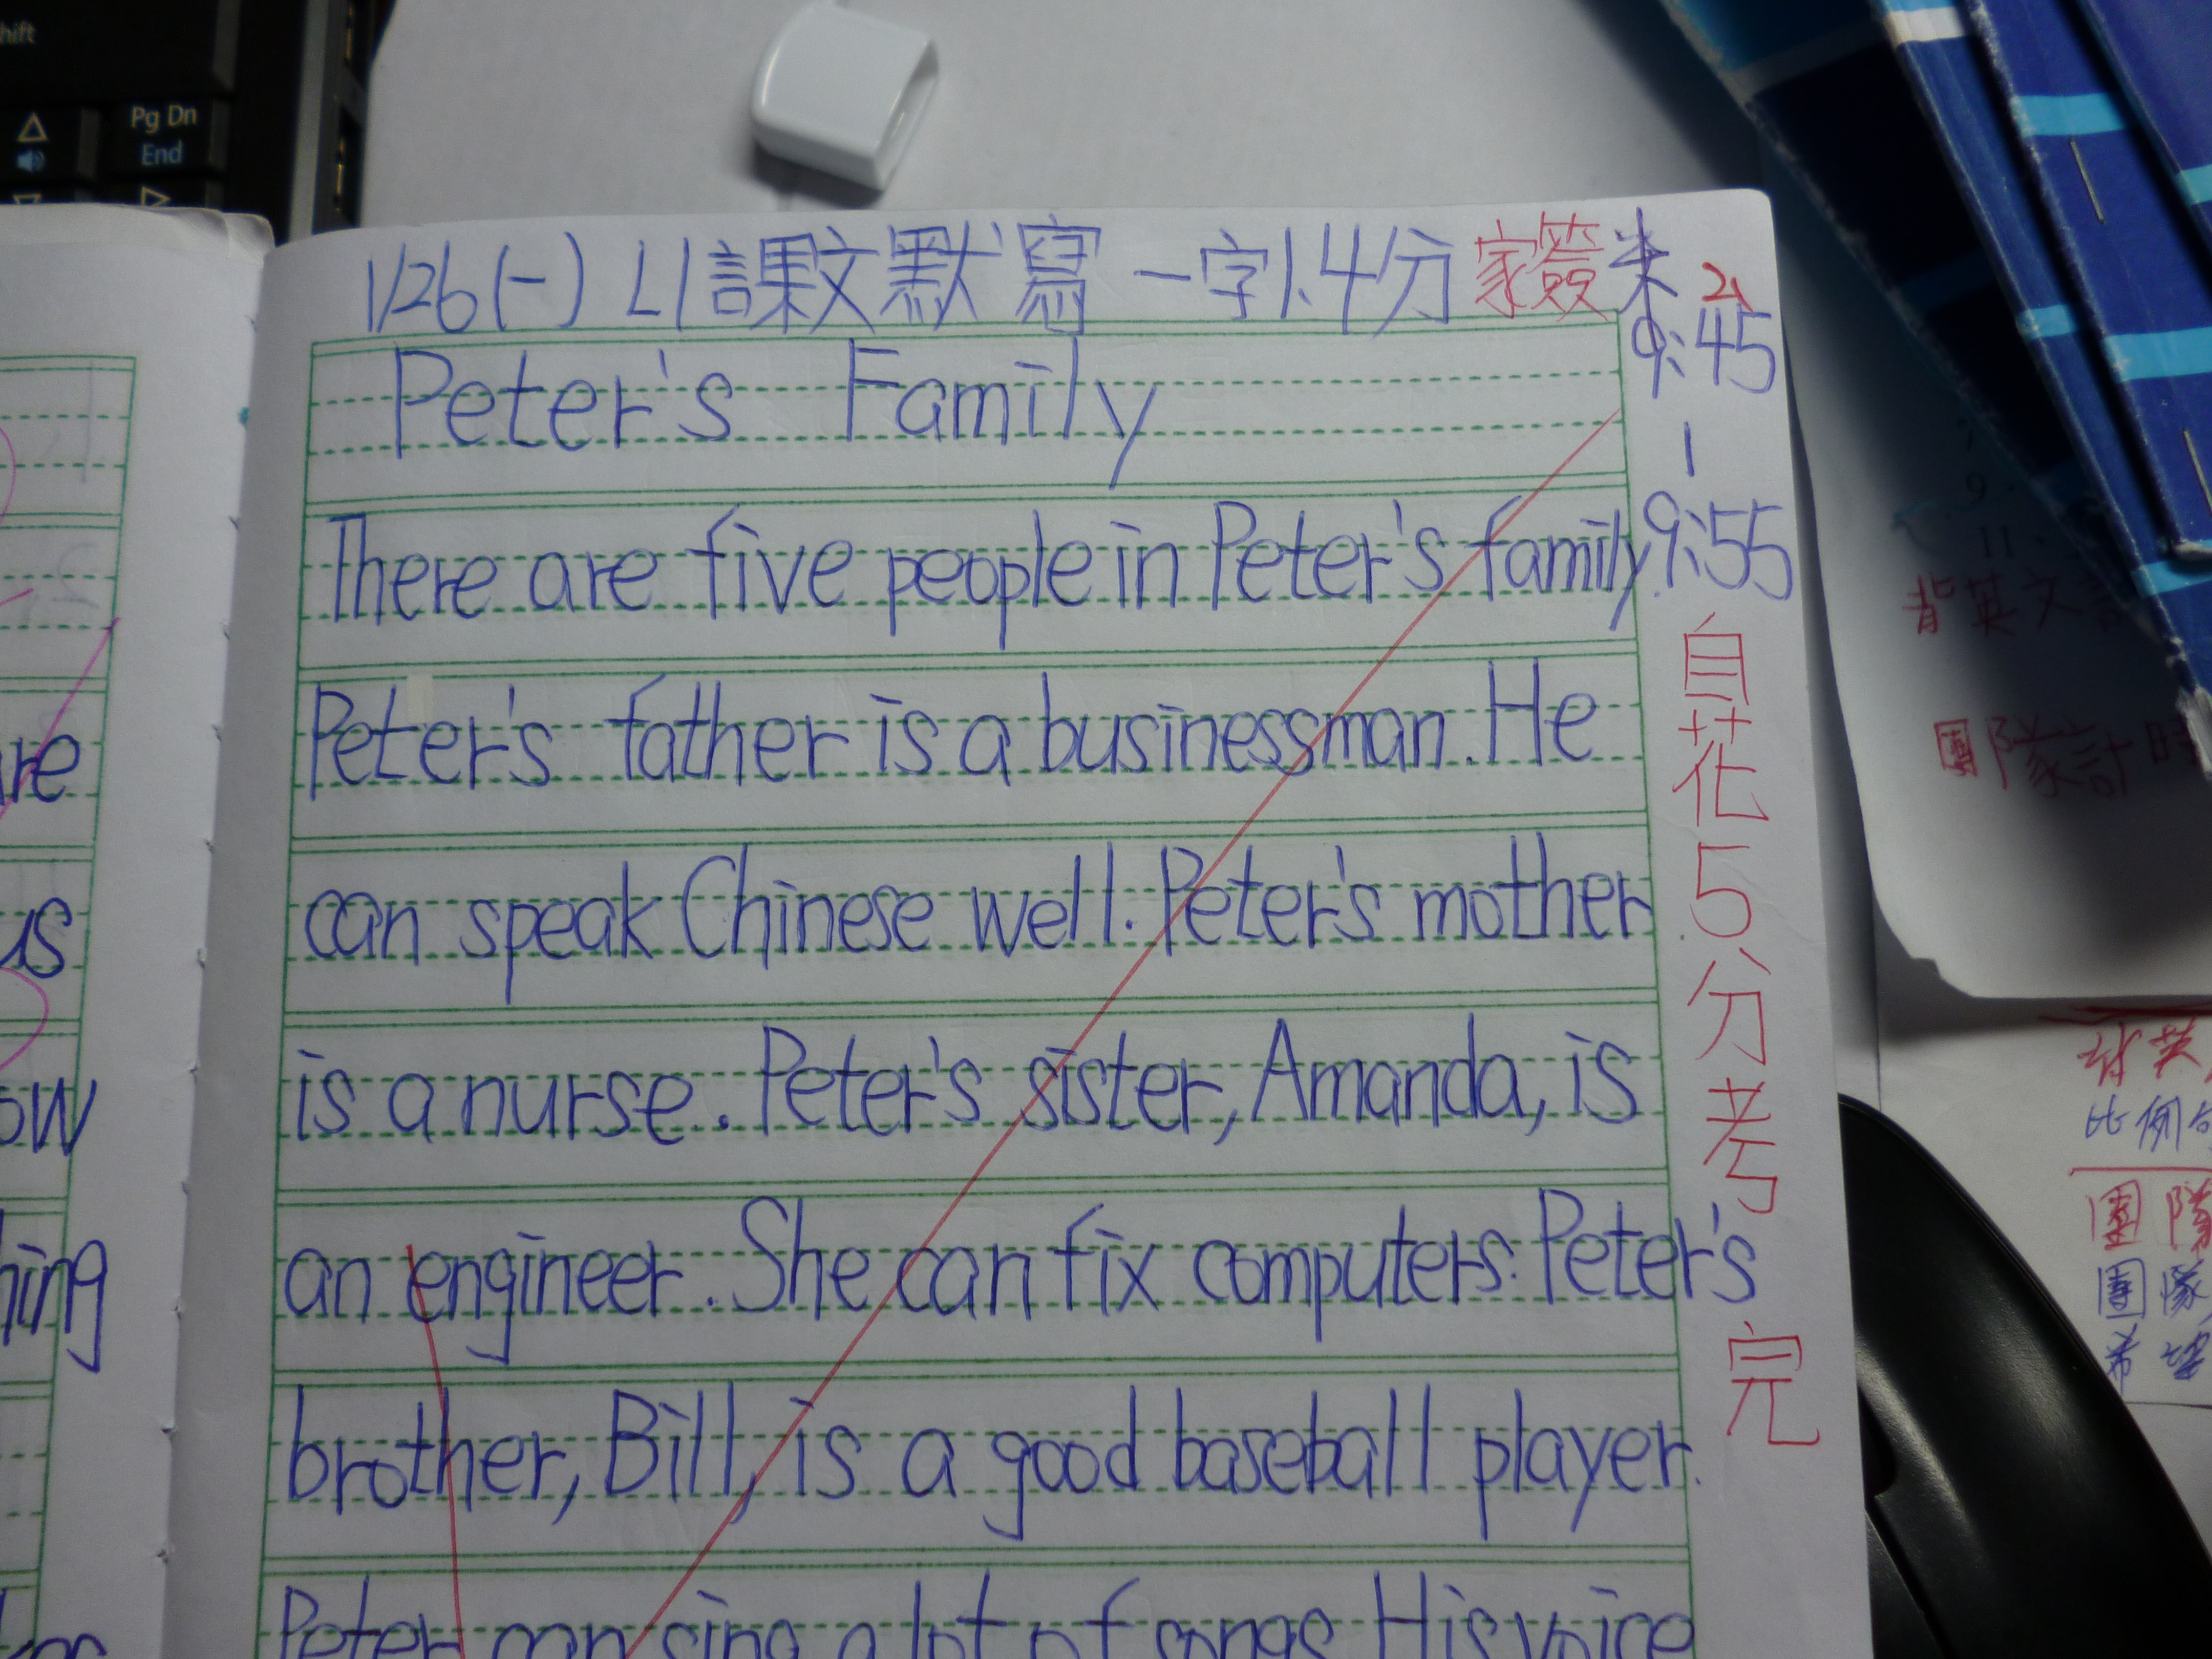 Pg Dn
End
1/26(一) L1 課文默寫 一字1.4分 家簽
9:45
9:55
自花5分考完
Peter's Family
There are five people in Peter's family.
Peter's father is a businessman. He
can speak Chinese well. Peter's mother
is a nurse. Peter's sister, Amanda, is
an engineer. She can fix computers. Peter's
brother, Bill, is a good baseball player.
Peter can sing a lot of songs. His voice
re
us
ow
hing
背英文
團隊計時
比例
團隊
團隊
希望